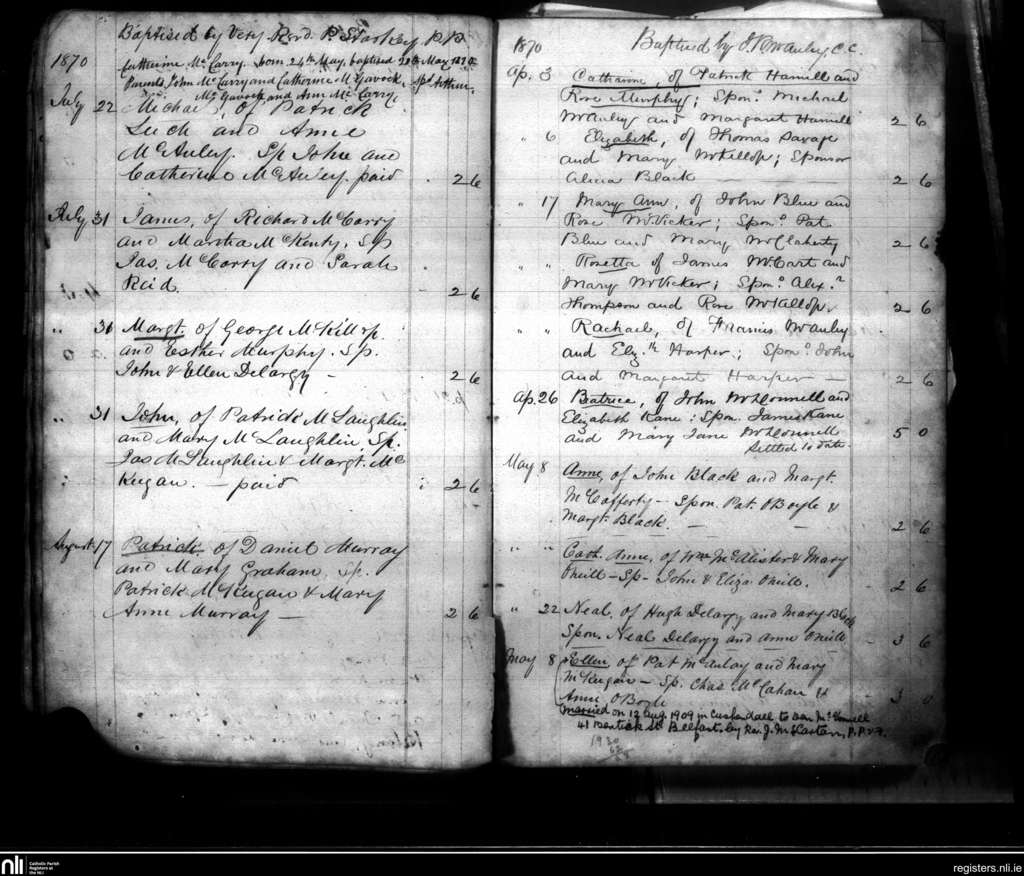 Baptised by Very Revd. P. Starkey P.P.
1870
Catherine Mc Carry. born 24th May, baptised 29th May 1870
Parents John Mc Carry and Catherine Mc Gavock, Spd. Arthur
Mc Gavock and Ann Mc Carry.
July 22 Michael, of Patrick
Luch and Anne
McAuley. Sp John and
Catherine McAuley. paid 2 6
July 31 James, of Richard McCorry
and Martha McKenty. Sp
Jas. McCorry and Sarah
Reid. 2 6
" 31 Margt. of George McKillop
and Esther Murphy. Sp.
John & Ellen Delargy — 2 6
" 31 John, of Patrick McLaughlin
and Mary McLaughlin Sp.
Jas McLaughlin & Margt. Mc
Keegan. — paid 2 6
August 17 Patrick, of Daniel Murray
and Mary Graham, Sp.
Patrick McKeegan & Mary
Anne Murray — 2 6
1870 Baptised by J. McAuley C.C.
Ap. 3 Catharine, of Patrick Hamill and
Rose Murphy; Spons. Michael
McAuley and Margaret Hamill 2 6
" 6 Elizabeth, of Thomas Savage
and Mary McKillop; Sponsor
Alicia Black 2 6
" 17 Mary Ann, of John Blue and
Rose McVicker; Spons. Pat
Blue and Mary McClaherty 2 6
" " Rosetta of James McCart and
Mary McVicker; Spons. Alexr.
Thompson and Rose McKillop. 2 6
" " Rachael, of Francis McAuley
and Elizth Harper; Spons. John
and Margaret Harper — 2 6
Ap. 26 Beatrice, of John McDonnell and
Elizabeth Kane: Spon. James Kane
and Mary Jane McDonnell 5 0
Settled to date
May 8 Anne, of John Black and Margt.
McCafferty — Spon. Pat. O'Boyle &
Margt. Black. — 2 6
" " Cath. Anne, of Wm McAlister & Mary
Oneill — Sp — John & Eliza Oneill. 2 6
" 22 Neal, of Hugh Delargy and Mary Black
Spon. Neal Delargy and Anne Oneill 3 6
May 8 Ellen, of Pat McAulay and Mary
McKeegan — Sp. Chas McCahan &
Anne O'Boyle 3 0
Married on 12 Aug. 1909 in Cushendall to Dan McDonnell
41 Bentick St. Belfast. by Rev. J. McCartan, P.P.V.F.
1930
nli Catholic Parish
Registers at
the NLI
registers.nli.ie